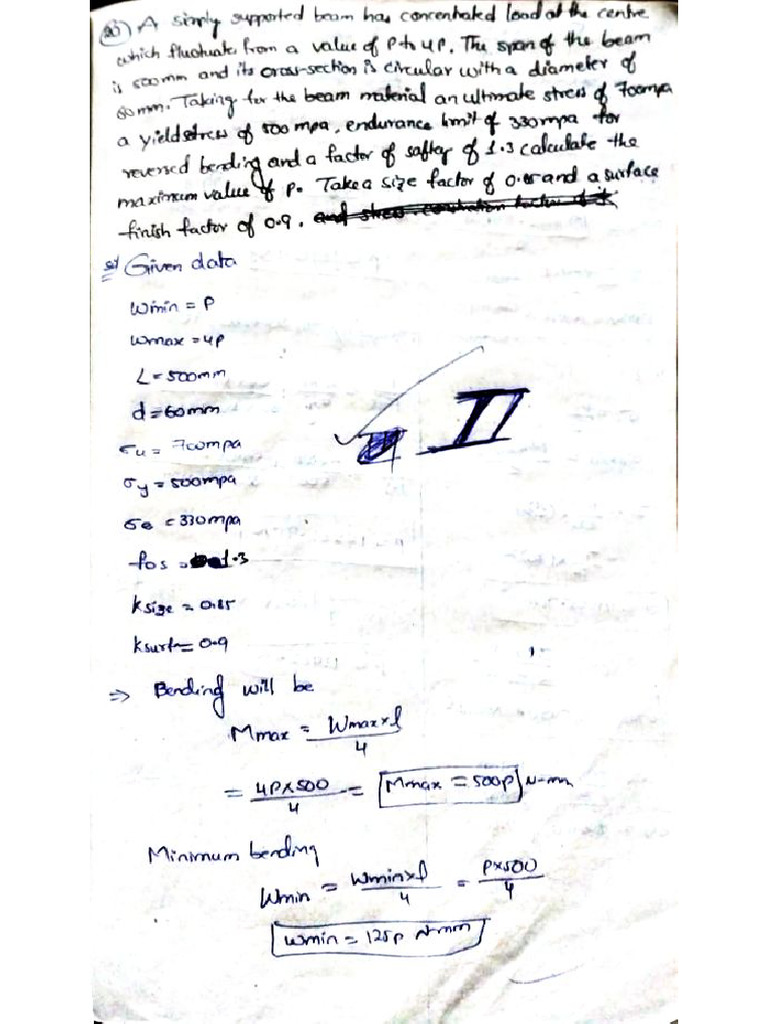 20) A simply supported beam has concentrated load at the centre
which fluctuate from a value of P to 4P. The span of the beam
is 500mm and its cross-section is circular with a diameter of
60mm. Taking for the beam material an ultimate stress of 700mpa
a yield stress of 500 mpa, endurance limit of 330mpa for
reversed bending and a factor of saftey of 1.3 calculate the
maximum value of P. Take a size factor of 0.85 and a surface
finish factor of 0.9.
sol Given data
Wmin = P
Wmax = 4P
L = 500mm
d = 60mm
σu = 700mpa
σy = 500mpa
σe = 330mpa
fos = 1.3
ksize = 0.85
ksurf = 0.9
II
⇒ Bending will be
Mmax = Wmax×l / 4
= 4P×500 / 4 = Mmax = 500P N-mm
Minimum bending
Wmin = Wmin×l / 4 = P×500 / 4
Wmin = 125P N-mm